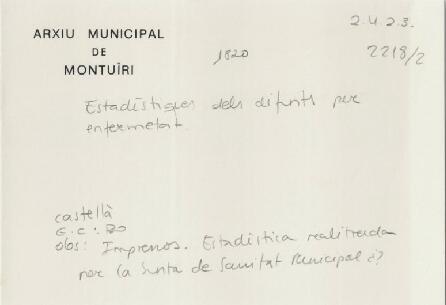 2.4.2.3.
ARXIU MUNICIPAL
DE
MONTUÏRI
1820
2218/2
Estadístiques dels difunts per
enfermetat.
castellà
E.C.: Bo
obs: Impresos. Estadística realitzada
per la Junta de Sanitat Municipal (?)